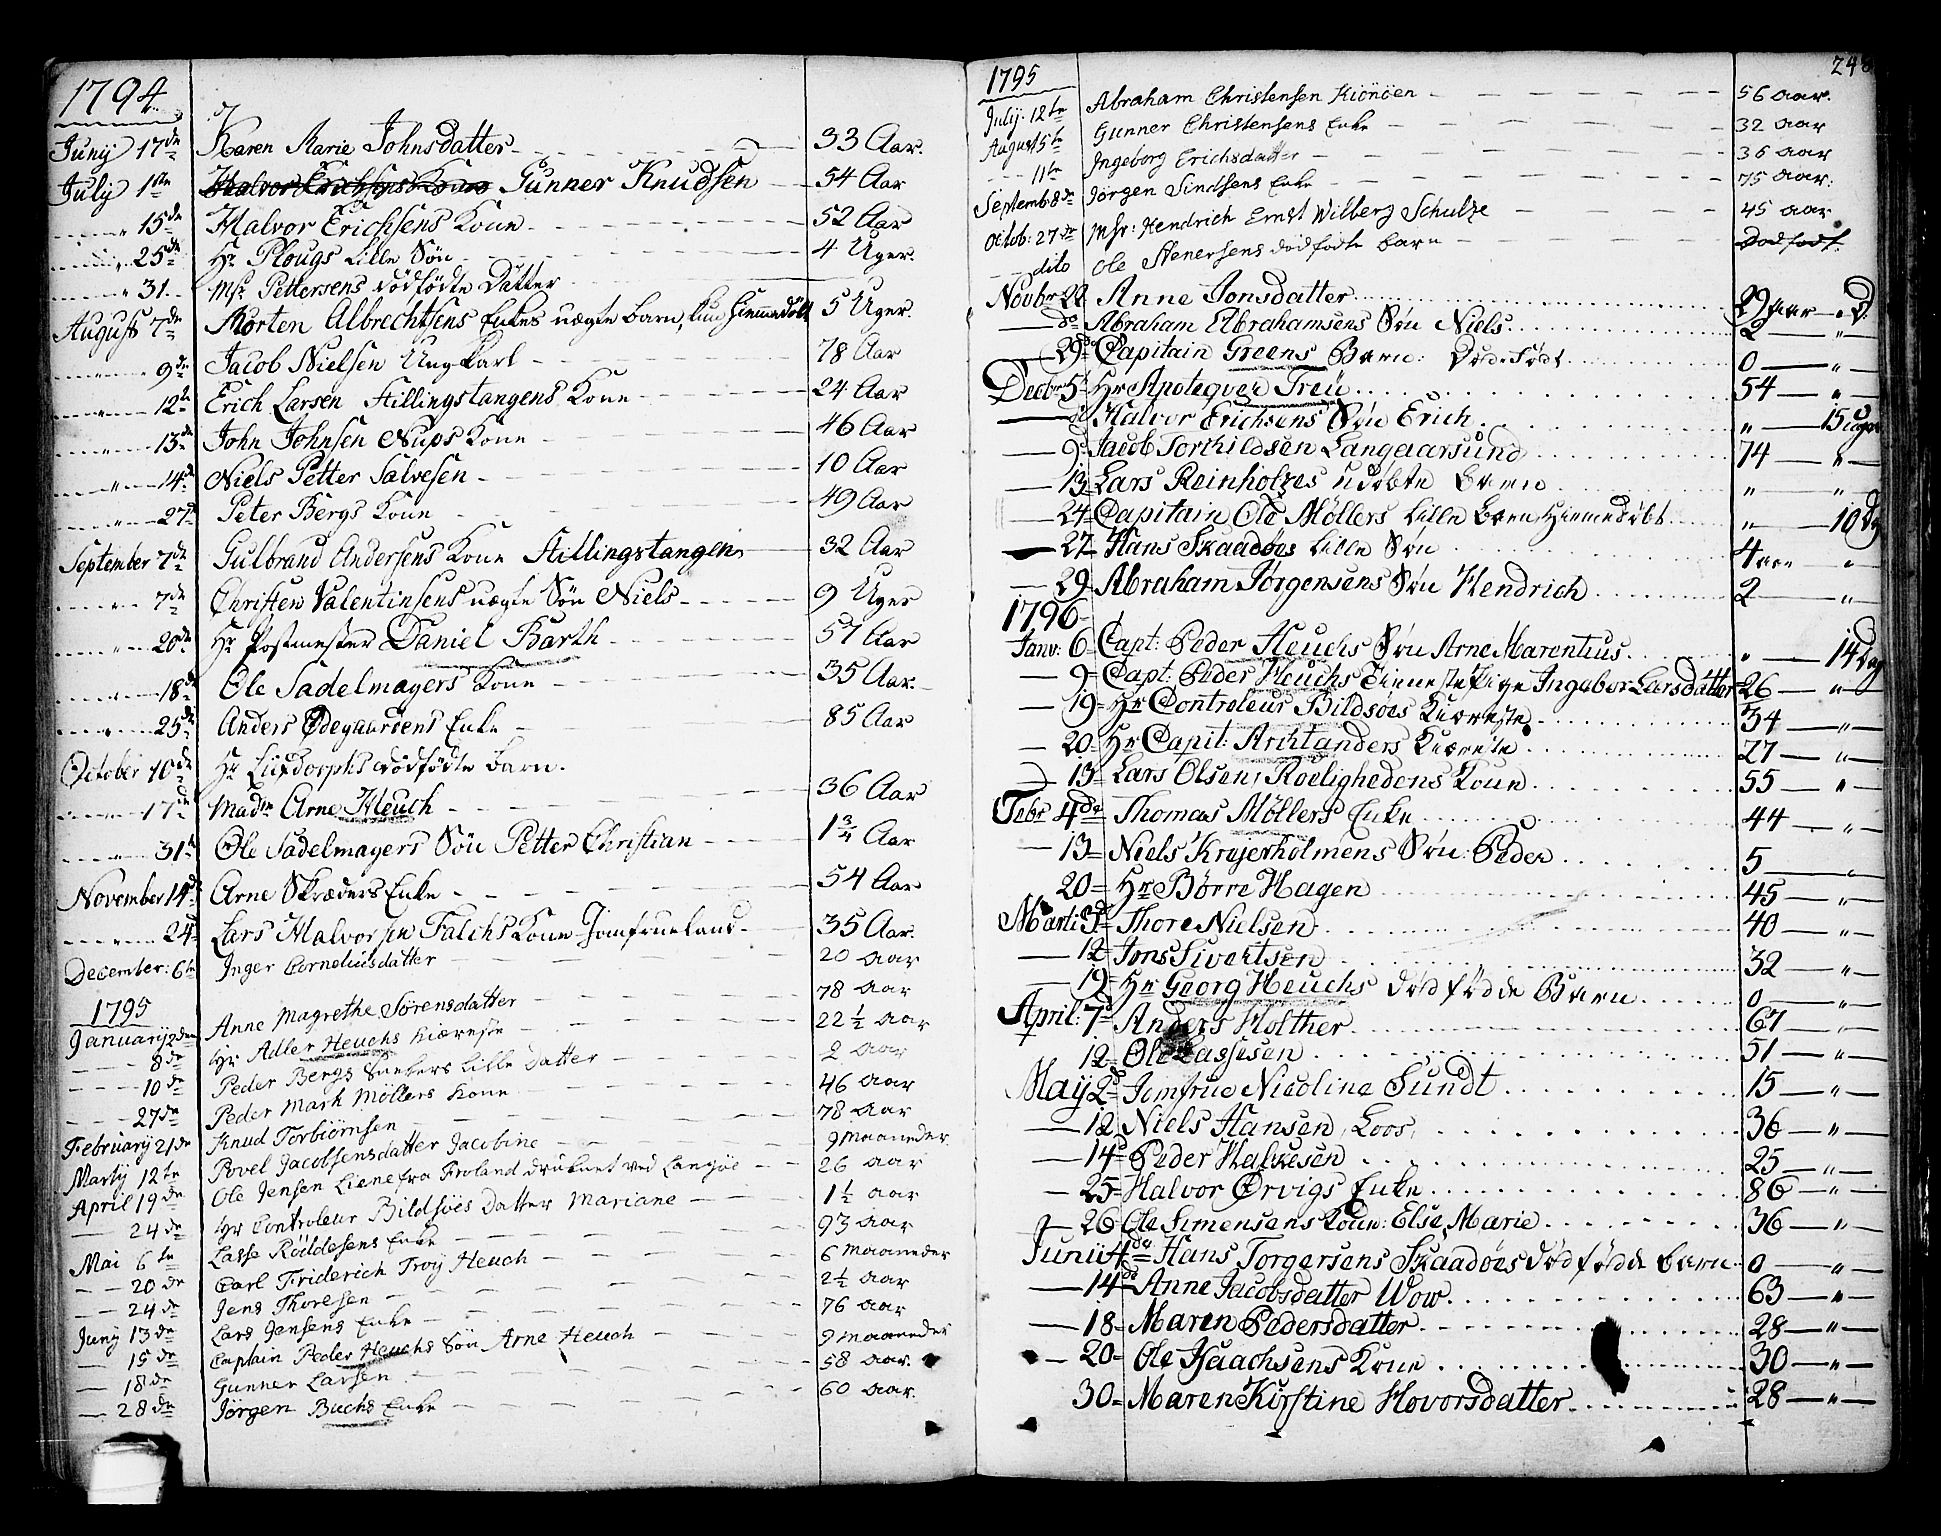 1794
Junij 17de Karen Marie Johnsdatter 33 Aar.
July 1ste Halvor Erichsens Kone Gunner Knudsen 54 Aar
" 15de Halvor Erichsens Kone 52 Aar
" 25de Hr Plougs Lille Søn 4 Uger.
" 31 Msr Pettersens dödfödte Datter
August 7de Morten Albrechtsens Enkes uægte barn, kun hiemmedöbt 5 Uger.
" 9de Jacob Nielsen Ungkarl 78 Aar
" 12te Erich Larsen Stillingstangens Kone 24 Aar
" 13de John Johnsen Nups Kone 46 Aar
" 14de Niels Petter Salvesen 10 Aar
" 27de Peter Bergs Kone 49 Aar
September 7de Gulbrand Andersens Kone Stillingstangen 32 Aar
" 7de Christen Valentinsens uægte Søn Niels 9 Uger
" 20de Hr Postmester Daniel Barth 57 Aar
" 18de Ole Sadelmagers Kone 35 Aar.
" 25de Anders Ødegaardens Enke 85 Aar
October 10de Hr Liisdorphs dödfödte barn.
" 17de Madm Arne Heuch 36 Aar
" 31te Ole Sadelmagers Søn Petter Christian 1 3/4 Aar
November 14de Arne Skræders Enke 54 Aar
" 24de Lars Halvorsen Falchs Kone Jomfrueland 35 Aar.
December: 6te Inger Cornelius datter 20 Aar
1795
Januarij 2den Anne Magrethe Sörensdatter 78 Aar
8de Hr Adler Heuchs Kiæreste 22 1/2 Aar
10de Peder Bergs Snekers Lille Datter 2 Aar
27de Peder Mark Möllers Kone 46 Aar
Februarij 21de Knud Torbiörnsen 78 Aar
Martij 12te Povel Jacobsens datter Jacobine 9 Maaneder.
April 19de Ole Jensen Liene fra Froland druknet ved Langöe 26 Aar
24de Hr Controleur Bildsöes Datter Mariane 1 1/2 Aar
Mai 6te Lasse Röildesens Enke 93 Aar
20de Carl Friderich Troij Heuch 6 Maaneder
24de Jens Thoresen 2 1/2 Aar
Junij 13de Lars Jensens Enke 76 Aar
15de Captain Peder Heuchs Sön Arne Heuch 9 Maaneder
18de Gunner Larsen 58 Aar.
28de Jörgen Buchs Enke 60 Aar.
1795 248
Julij. 12te Abraham Christensen Kiönöen 56 Aar.
August 5te Gunner Christensens Enke 32 Aar
11te Ingeborg Erichsdatter 36 Aar
Septemb 8de Jörgen Sindsens Enke 75 Aar:
Octob: 27de Msr: Hendrich Ernst Wilberg Schulze 45 Aar
dito Ole Stenersens dödfödte barn Dödfödt.
Novbr 22 Anne Jonsdatter 29 Aar " D.
do Abraham Abrahamsens Søn Niels 2 "
29de Capitain Greens Barn: Død-Født 0 "
Decbr 5te Hr Apoteqver Treu 54 "
d Halvor Erichsens Søn Erich " 15 Uger
9 Jacob Torkildsen Langaarsund 74 "
13 Lars Reinholzes udøbte Barn " "
24 Capitain Ole Møllers lille Barn Hiemedøbt " 10 Dg
27 Hans Skaadøes lille Søn 4 Aar "
29 Abraham Jørgensens Søn Hendrich 2 "
1796
Janv: 6 Capt: Peder Heuchs Søn Arne Marentius " 14 Dag
9 Capt: Peder Heuchs Tienestepige Ingebor Larsdatter 26 "
19 Hr Controleur Bildsöes Kiæreste 34 "
20 Hr Capit: Arktanders Kiæreste 27 "
13 Lars Olsen, Roelighedens Kone 55 "
Febr 4de Thomas Møllers Enke 44 "
13 Niels Krajerholmens Søn: Peder 5 "
20 Hr Børre Hagen 45 "
Marti: 3d Thore Nielsen 40 "
12 Jons Sivertsen 32 "
19 Hr Georg Heuchs dødfødde Barn 0 "
April: 7d Anders Holther 67 "
12 Ole Lassesen 51 "
May 2d Jomfrue Nicoline Sundt 15 "
12 Niels Hansen, Loos, 36 "
14d Peder Halvesen 25 "
25 Halvor Ørvigs Enke 86 "
26 Ole Simensens Kone: Else Marie 36 "
Junii 4de Hans Torgersens Skaadøes dødfødde barn 0 "
14de Anne Jacobsdatter Wow 63 "
18 Maren Pedersdatter 28 "
20 Ole Isaachsens Kone 30 "
30 Maren Kirstine Hovorsdatter 28 "